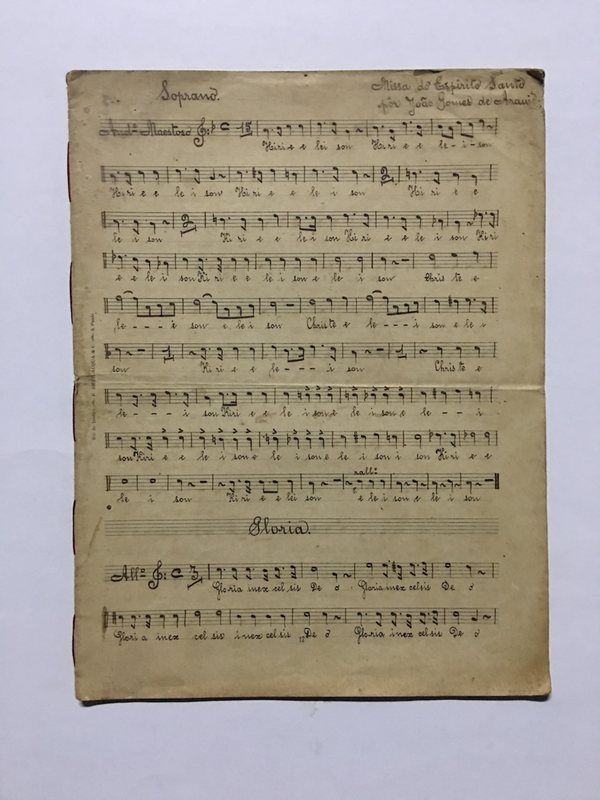 Soprano. Missa do Espirito Santo
por João Gomes de Araujo
And.º Maestoso C 15
Kiri e e lei son Kiri e e le - i - son
Kiri e e le i son Kiri e e le i son 2 Kiri e e
le i son 2 Kiri e e le i son Kiri e e le i son Kiri
e e le i son Kiri e e le i son e le i son Chris te e
le - - - i son e le i son Chris te e le - - - i son e le i
son 1 Kiri e e le - - - i son 1 Chris te e
le - - i son Kiri e e le i son e le i son e le - - i
son Kiri e e le i son e le i son e le i son e le i son Kiri e e
rall:
le i son Kiri e e lei son e le i son e le i son
Gloria.
All.º C 3
Gloria in ex cel sis De o Gloria in ex celsis De o
Glori a in ex cel sis in ex cel sis De o Glo ria in ex celsis De o